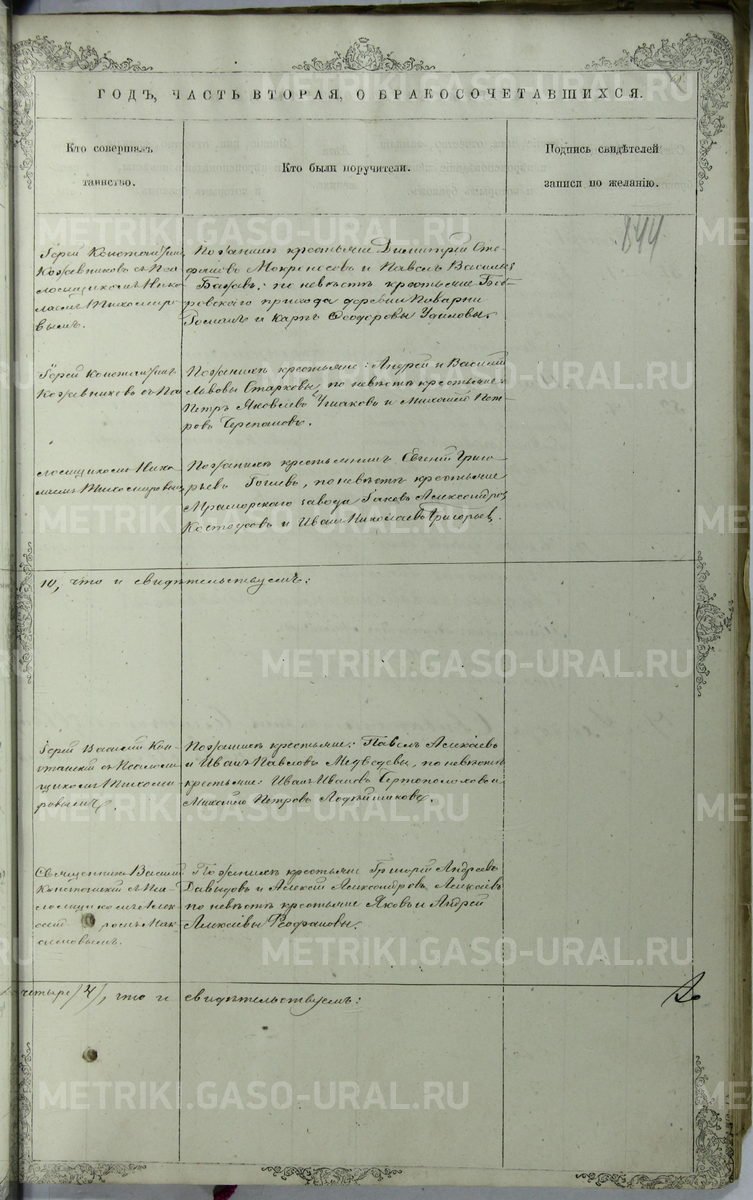 ГОДЪ, ЧАСТЬ ВТОРАЯ, О БРАКОСОЧЕТАВШИХСЯ.
Кто совершалъ
таинство.
Кто были поручители.
Подпись свидѣтелей
записи по желанію.
844
Іерей Константинъ
Кожевниковъ съ Пса-
ломщикомъ Нико-
лаемъ Тихомиро-
вымъ.
По женихѣ крестьяне Димитрій Сте-
фановъ Мокроносовъ и Павелъ Васильевъ
по невѣстѣ крестьяне
ровскаго прихода деревни
Романъ и Карпъ Ѳеодоровы
Іерей Константинъ
Кожевниковъ съ Пса-
По женихѣ крестьяне: Андрей и Василій
Львовы Старковы, по невѣстѣ крестьяне:
Петръ Яковлевъ Ушаковъ и Михаилъ Пет-
ровъ Черепановъ.
ломщикомъ Нико-
лаемъ Тихомировымъ
По женихѣ крестьянинъ Григо-
рьевъ по невѣстѣ крестьяне
Мраморскаго завода Іаковъ Александровъ
Костоусовъ и Иванъ Николаевъ Григорьев.
10, что и свидѣтельствуемъ:
Іерей Василій Кон-
станскій съ Псалом-
щикомъ Тихоми-
ровымъ.
По женихѣ крестьяне: Павелъ Алексѣевъ
и Иванъ Павловъ Медведевы, по невѣстѣ
крестьяне: Иванъ Ивановъ Чертополоховъ и
Михаилъ Петровъ
Священникъ Василій
съ Пса-
ломщикомъ Алек-
Мак-
симовымъ.
По женихѣ крестьяне Григорій Андреевъ
Давыдовъ и Алексѣй Александровъ Алексѣевъ
по невѣстѣ крестьяне Яковъ и Андрей
Алексѣевы
четыре (4), что и свидѣтельствуемъ:
METRIKI.GASO-URAL.RU